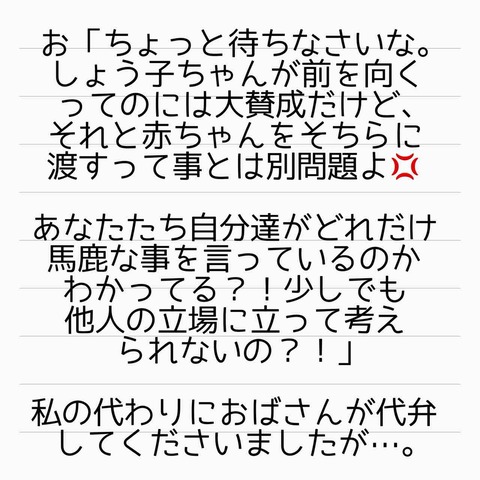 お「ちょっと待ちなさいな。
しょう子ちゃんが前を向く
ってのには大賛成だけど、
それと赤ちゃんをそちらに
渡すって事とは別問題よ💢
あなたたち自分達がどれだけ
馬鹿な事を言っているのか
わかってる？！少しでも
他人の立場に立って考え
られないの？！」
私の代わりにおばさんが代弁
してくださいましたが…。